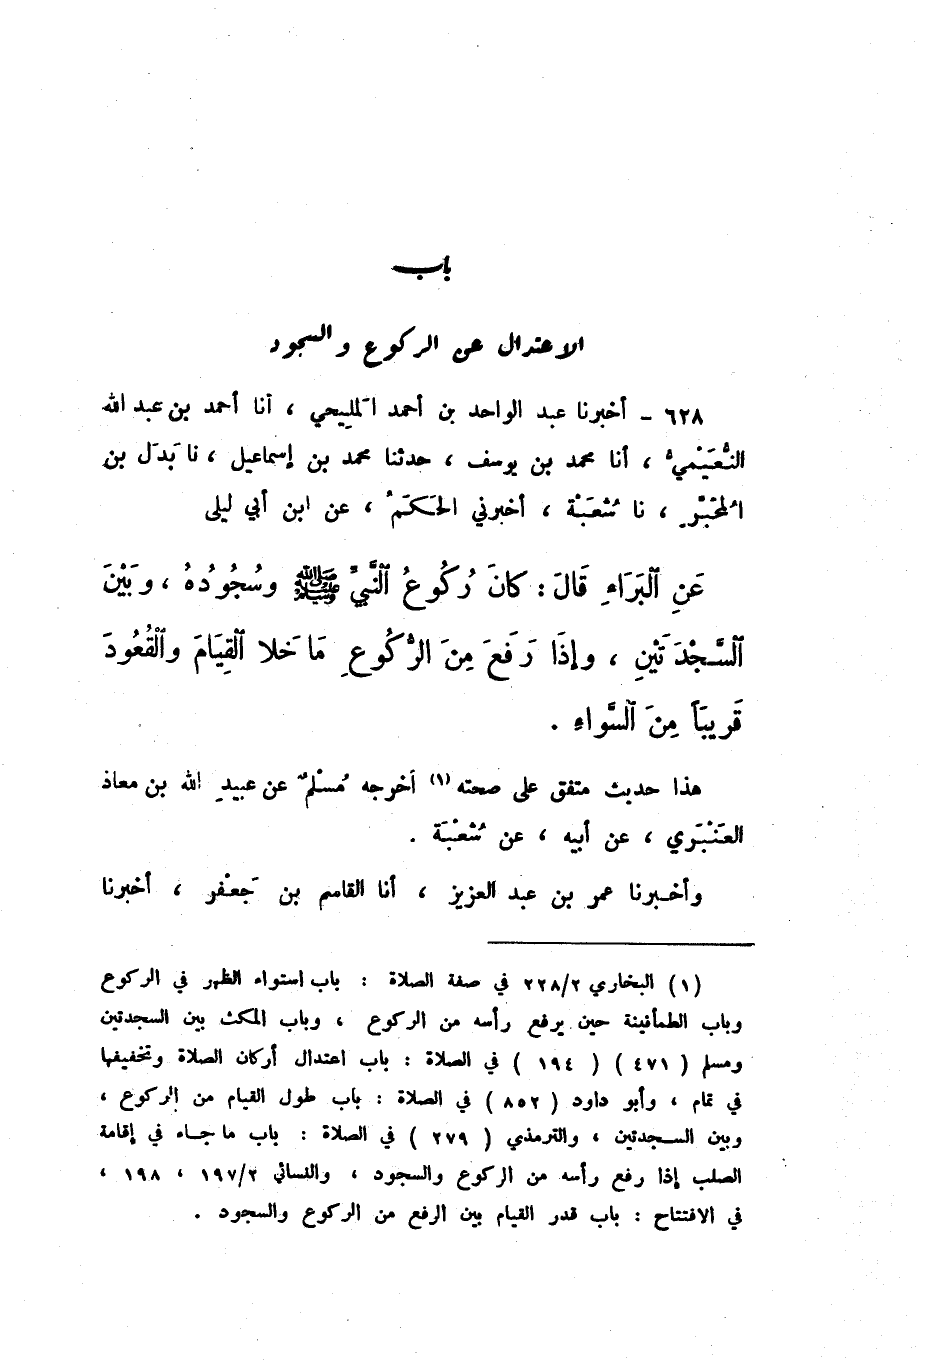 باب
الاعتدال عن الركوع والسجود
٦٢٨ – أخبرنا عبد الواحد بن أحمد المَلِيحي ، أنا أحمد بن عبد الله
النُّعَيْمي ، أنا محمد بن يوسف ، حدثنا محمد بن إسماعيل ، نا بَدَل بن
المُحَبَّرِ ، نا شُعْبَة ، أخبرني الحَكَمُ ، عن ابن أبي ليلى
عَنِ ٱلبَرَاءِ قَالَ : كانَ رُكُوعُ ٱلنَّبيِّ ﷺ وسُجُودُهُ ، وَبَيْنَ
ٱلسَّجْدَتَيْنِ ، وإذَا رَفَعَ مِنَ الرُّكُوعِ مَا خَلا ٱلْقِيَامَ وٱلْقُعُودَ
قَريبَاً مِنَ ٱلسَّواءِ .
هذا حديث متفق على صحته (١) أخرجه مُسْلمٌ عن عبيدِ الله بن معاذ
العَنْبَري ، عن أبيه ، عن شُعْبَة .
وأخبرنا عمر بن عبد العزيز ، أنا القاسم بن جَعْفر ، أخبرنا
(١) البخاري ٢٢٨/٢ في صفة الصلاة : باب استواء الظهر في الركوع
وباب الطمأنينة حين يرفع رأسه من الركوع ، وباب المكث بين السجدتين
ومسلم ( ٤٧١ ) ( ١٩٤ ) في الصلاة : باب اعتدال أركان الصلاة وتخفيفها
في تمام ، وأبو داود ( ٨٥٢ ) في الصلاة : باب طول القيام من الركوع ،
وبين السجدتين ، والترمذي ( ٢٧٩ ) في الصلاة : باب ما جاء في إقامة
الصلب إذا رفع رأسه من الركوع والسجود ، والنسائي ١٩٧/٢ ، ١٩٨ ،
في الافتتاح : باب قدر القيام بين الرفع من الركوع والسجود .